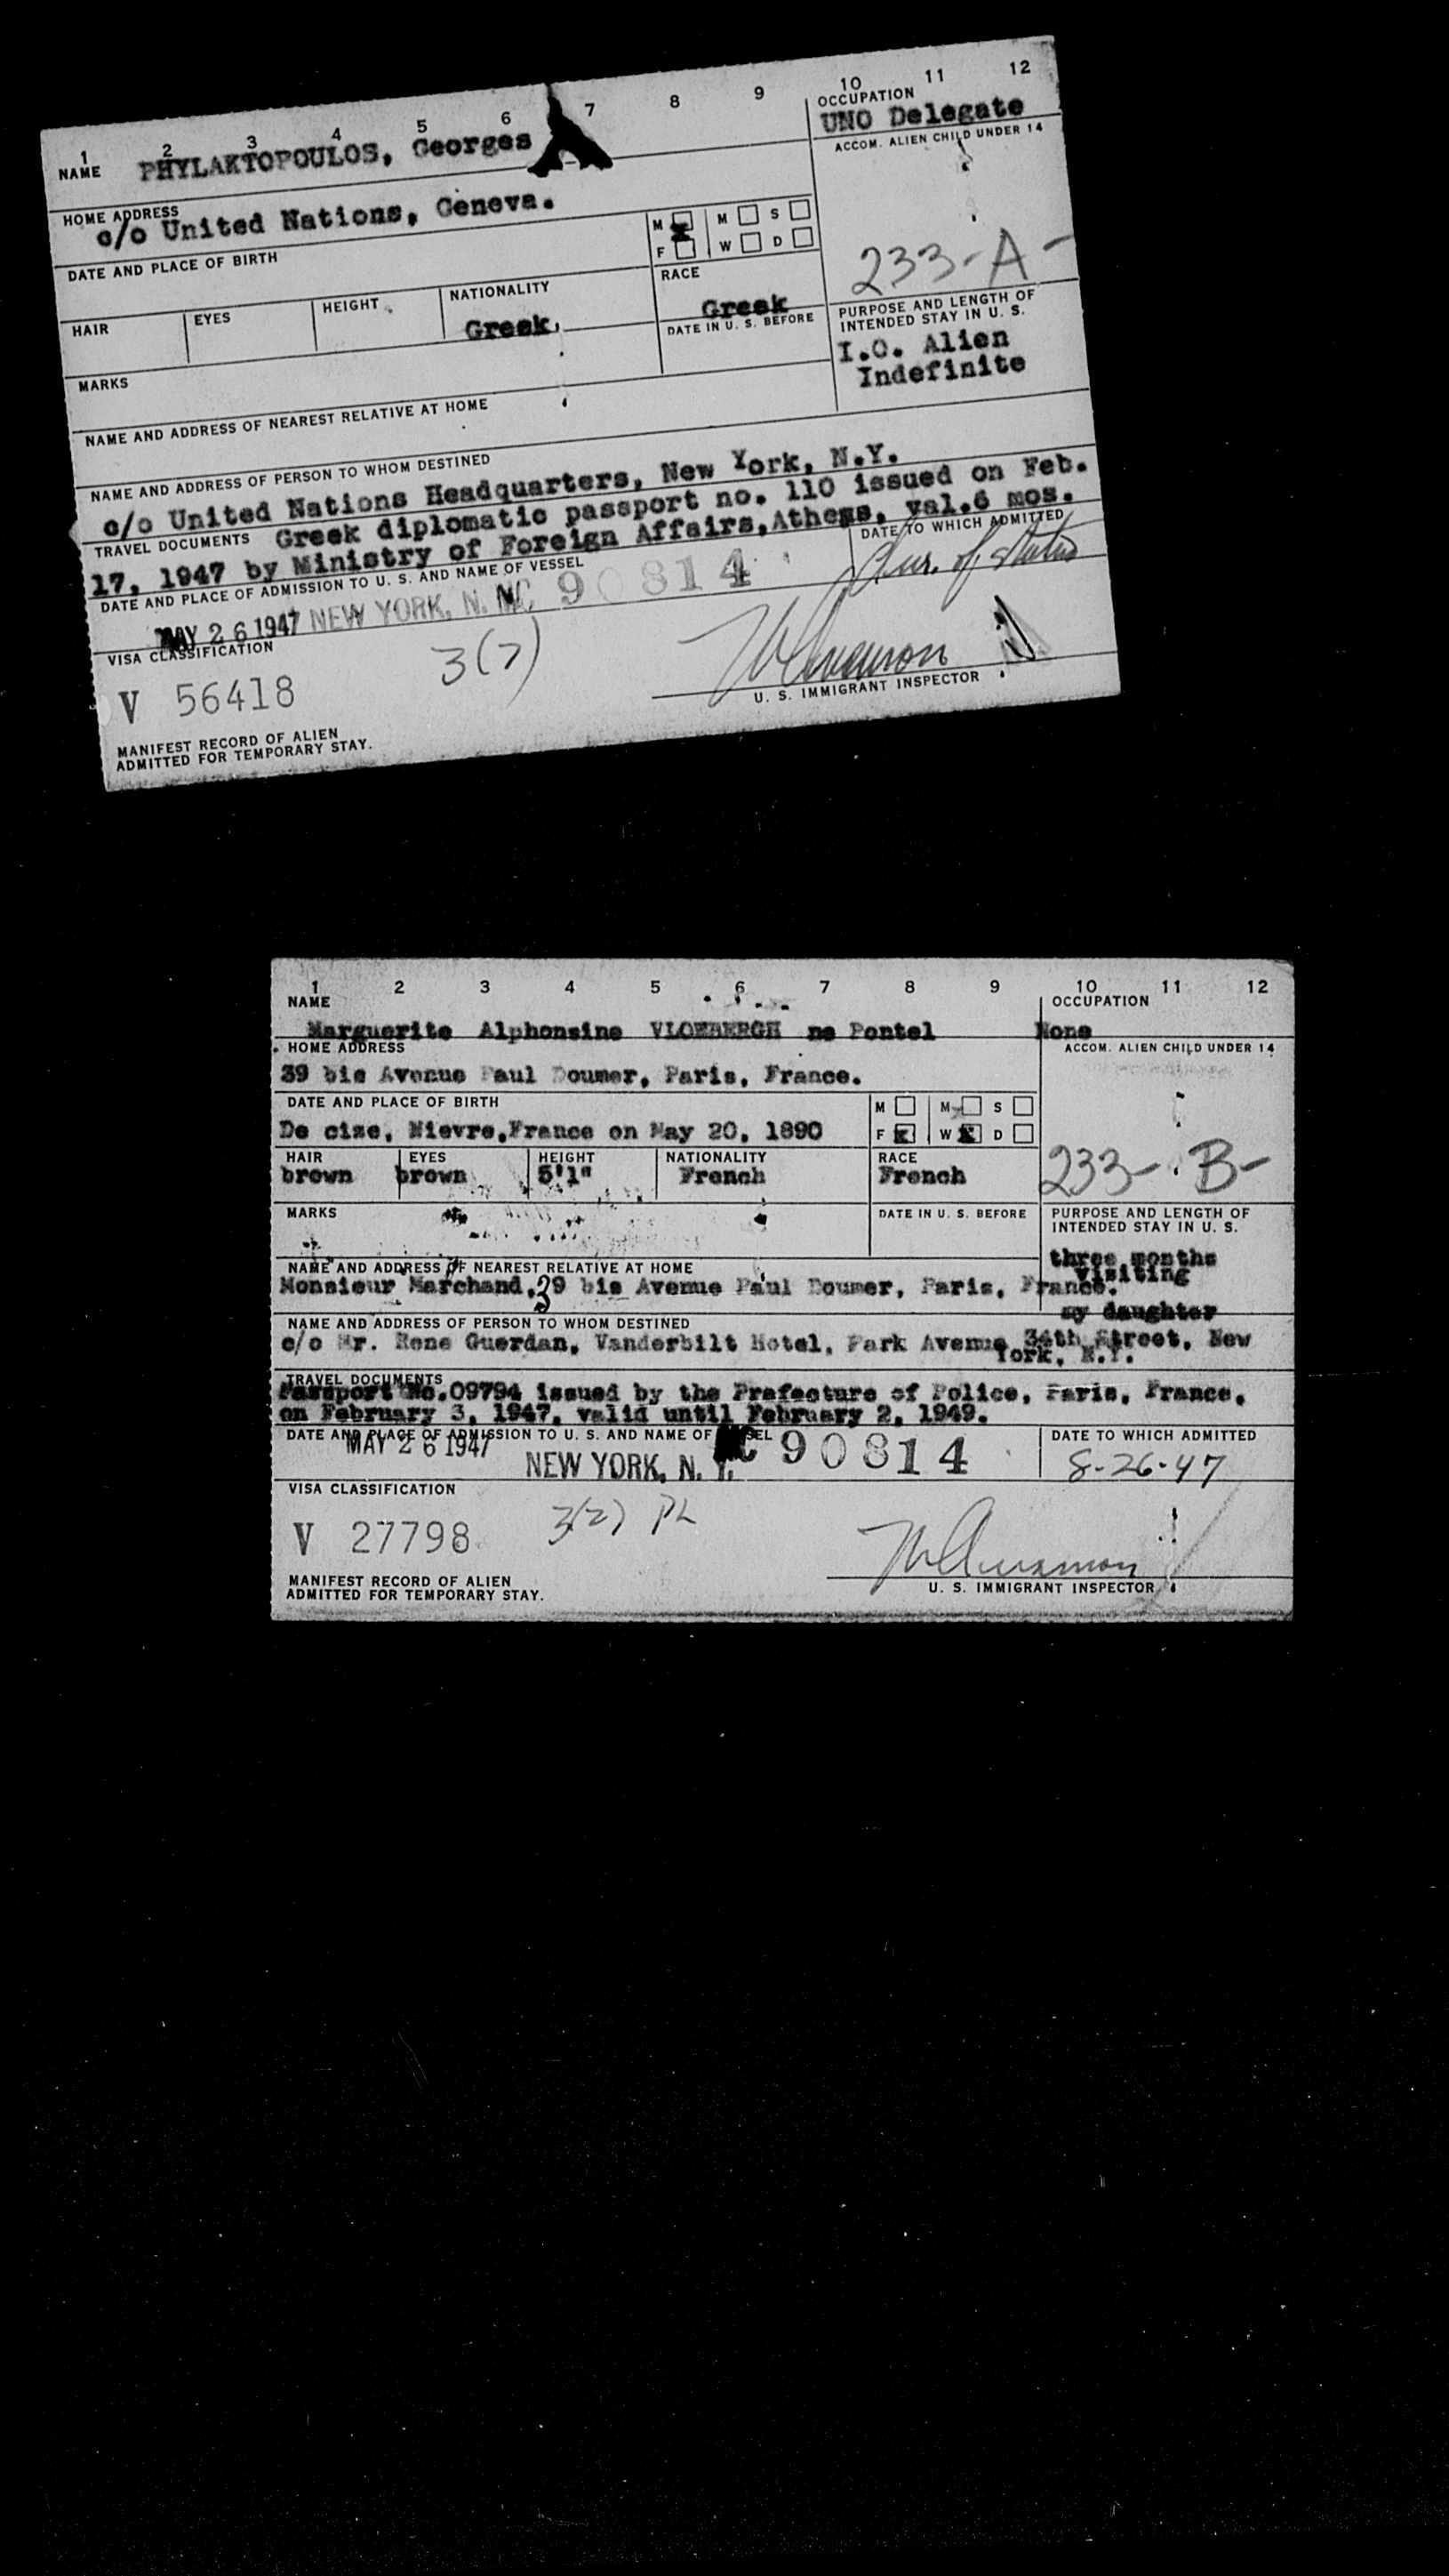 1 2 3 4 5 6 7 8 9 10 11 12
NAME PHYLAKTOPOULOS, Georges
OCCUPATION
UNO Delegate
ACCOM. ALIEN CHILD UNDER 14
HOME ADDRESS
c/o United Nations, Geneva.
DATE AND PLACE OF BIRTH
M M S
F W D
233-A-
HAIR EYES HEIGHT NATIONALITY RACE
Greek Greek
DATE IN U. S. BEFORE
PURPOSE AND LENGTH OF
INTENDED STAY IN U. S.
I.O. Alien
Indefinite
MARKS
NAME AND ADDRESS OF NEAREST RELATIVE AT HOME
NAME AND ADDRESS OF PERSON TO WHOM DESTINED
c/o United Nations Headquarters, New York, N.Y.
TRAVEL DOCUMENTS Greek diplomatic passport no. 110 issued on Feb.
17, 1947 by Ministry of Foreign Affairs, Athens, val.6 mos.
DATE TO WHICH ADMITTED
Dur. of status
DATE AND PLACE OF ADMISSION TO U. S. AND NAME OF VESSEL
MAY 26 1947 NEW YORK, N. NC 90814
VISA CLASSIFICATION
V 56418
3(7)
U. S. IMMIGRANT INSPECTOR
MANIFEST RECORD OF ALIEN
ADMITTED FOR TEMPORARY STAY.
1 2 3 4 5 6 7 8 9 10 11 12
NAME OCCUPATION
Marguerite Alphonsine VLOEBERGH ne Pontel None
HOME ADDRESS ACCOM. ALIEN CHILD UNDER 14
39 bis Avenue Paul Doumer, Paris, France.
DATE AND PLACE OF BIRTH
M M S
De cize, Nievre, France on May 20, 1890
F x W x D
HAIR EYES HEIGHT NATIONALITY RACE
brown brown 5'1" French French
233-B-
MARKS DATE IN U. S. BEFORE
PURPOSE AND LENGTH OF
INTENDED STAY IN U. S.
three months
visiting
my daughter
NAME AND ADDRESS OF NEAREST RELATIVE AT HOME
Monsieur Marchand, 39 bis Avenue Paul Doumer, Paris, France.
NAME AND ADDRESS OF PERSON TO WHOM DESTINED
c/o Mr. Rene Guerdan, Vanderbilt Hotel, Park Avenue 34th Street, New
York, N.Y.
TRAVEL DOCUMENTS
Passport No.09794 issued by the Prefecture of Police, Paris, France,
on February 3, 1947, valid until February 2, 1949.
DATE AND PLACE OF ADMISSION TO U. S. AND NAME OF VESSEL
DATE TO WHICH ADMITTED
MAY 26 1947 NEW YORK, N. Y. NC 90814
8-26-47
VISA CLASSIFICATION
V 27798
3(2) PL
U. S. IMMIGRANT INSPECTOR
MANIFEST RECORD OF ALIEN
ADMITTED FOR TEMPORARY STAY.